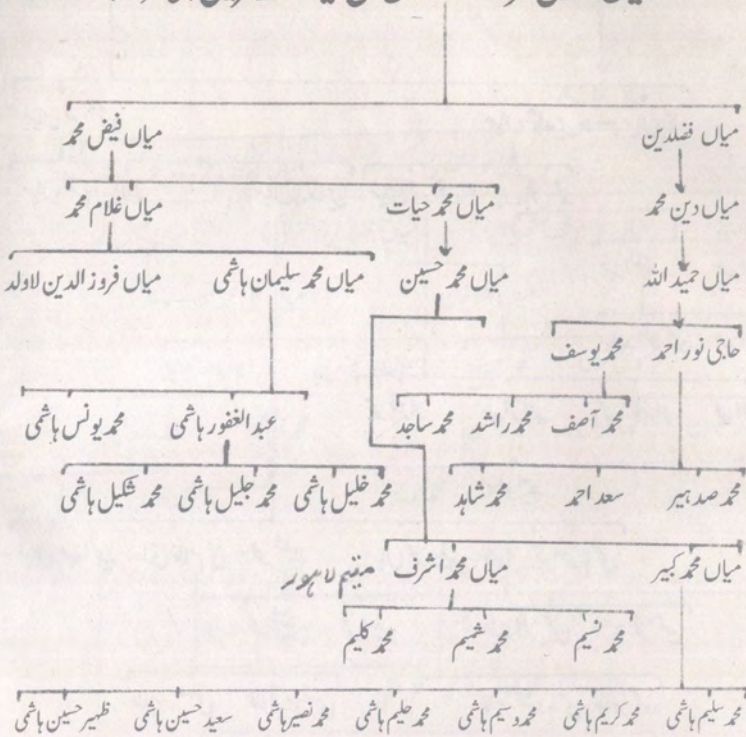 میاں فضلدین میاں فیض محمد
میاں دین محمد میاں محمد حیات میاں غلام محمد
میاں حمید اللہ میاں محمد حسین میاں محمد سلیمان ہاشمی میاں فروز الدین لاولد
حاجی نور احمد محمد یوسف
محمد آصف محمد راشد محمد ساجد عبدالغفور ہاشمی محمد یونس ہاشمی
محمد صدہیر سعد احمد محمد شاہد محمد خلیل ہاشمی محمد جلیل ہاشمی محمد شکیل ہاشمی
میاں محمد کبیر میاں محمد اشرف مقیم لاہور
محمد نسیم محمد شمیم محمد کلیم
محمد سلیم ہاشمی محمد کریم ہاشمی محمد وسیم ہاشمی محمد حلیم ہاشمی محمد نصیر ہاشمی سعید حسین ہاشمی ظہیر حسین ہاشمی